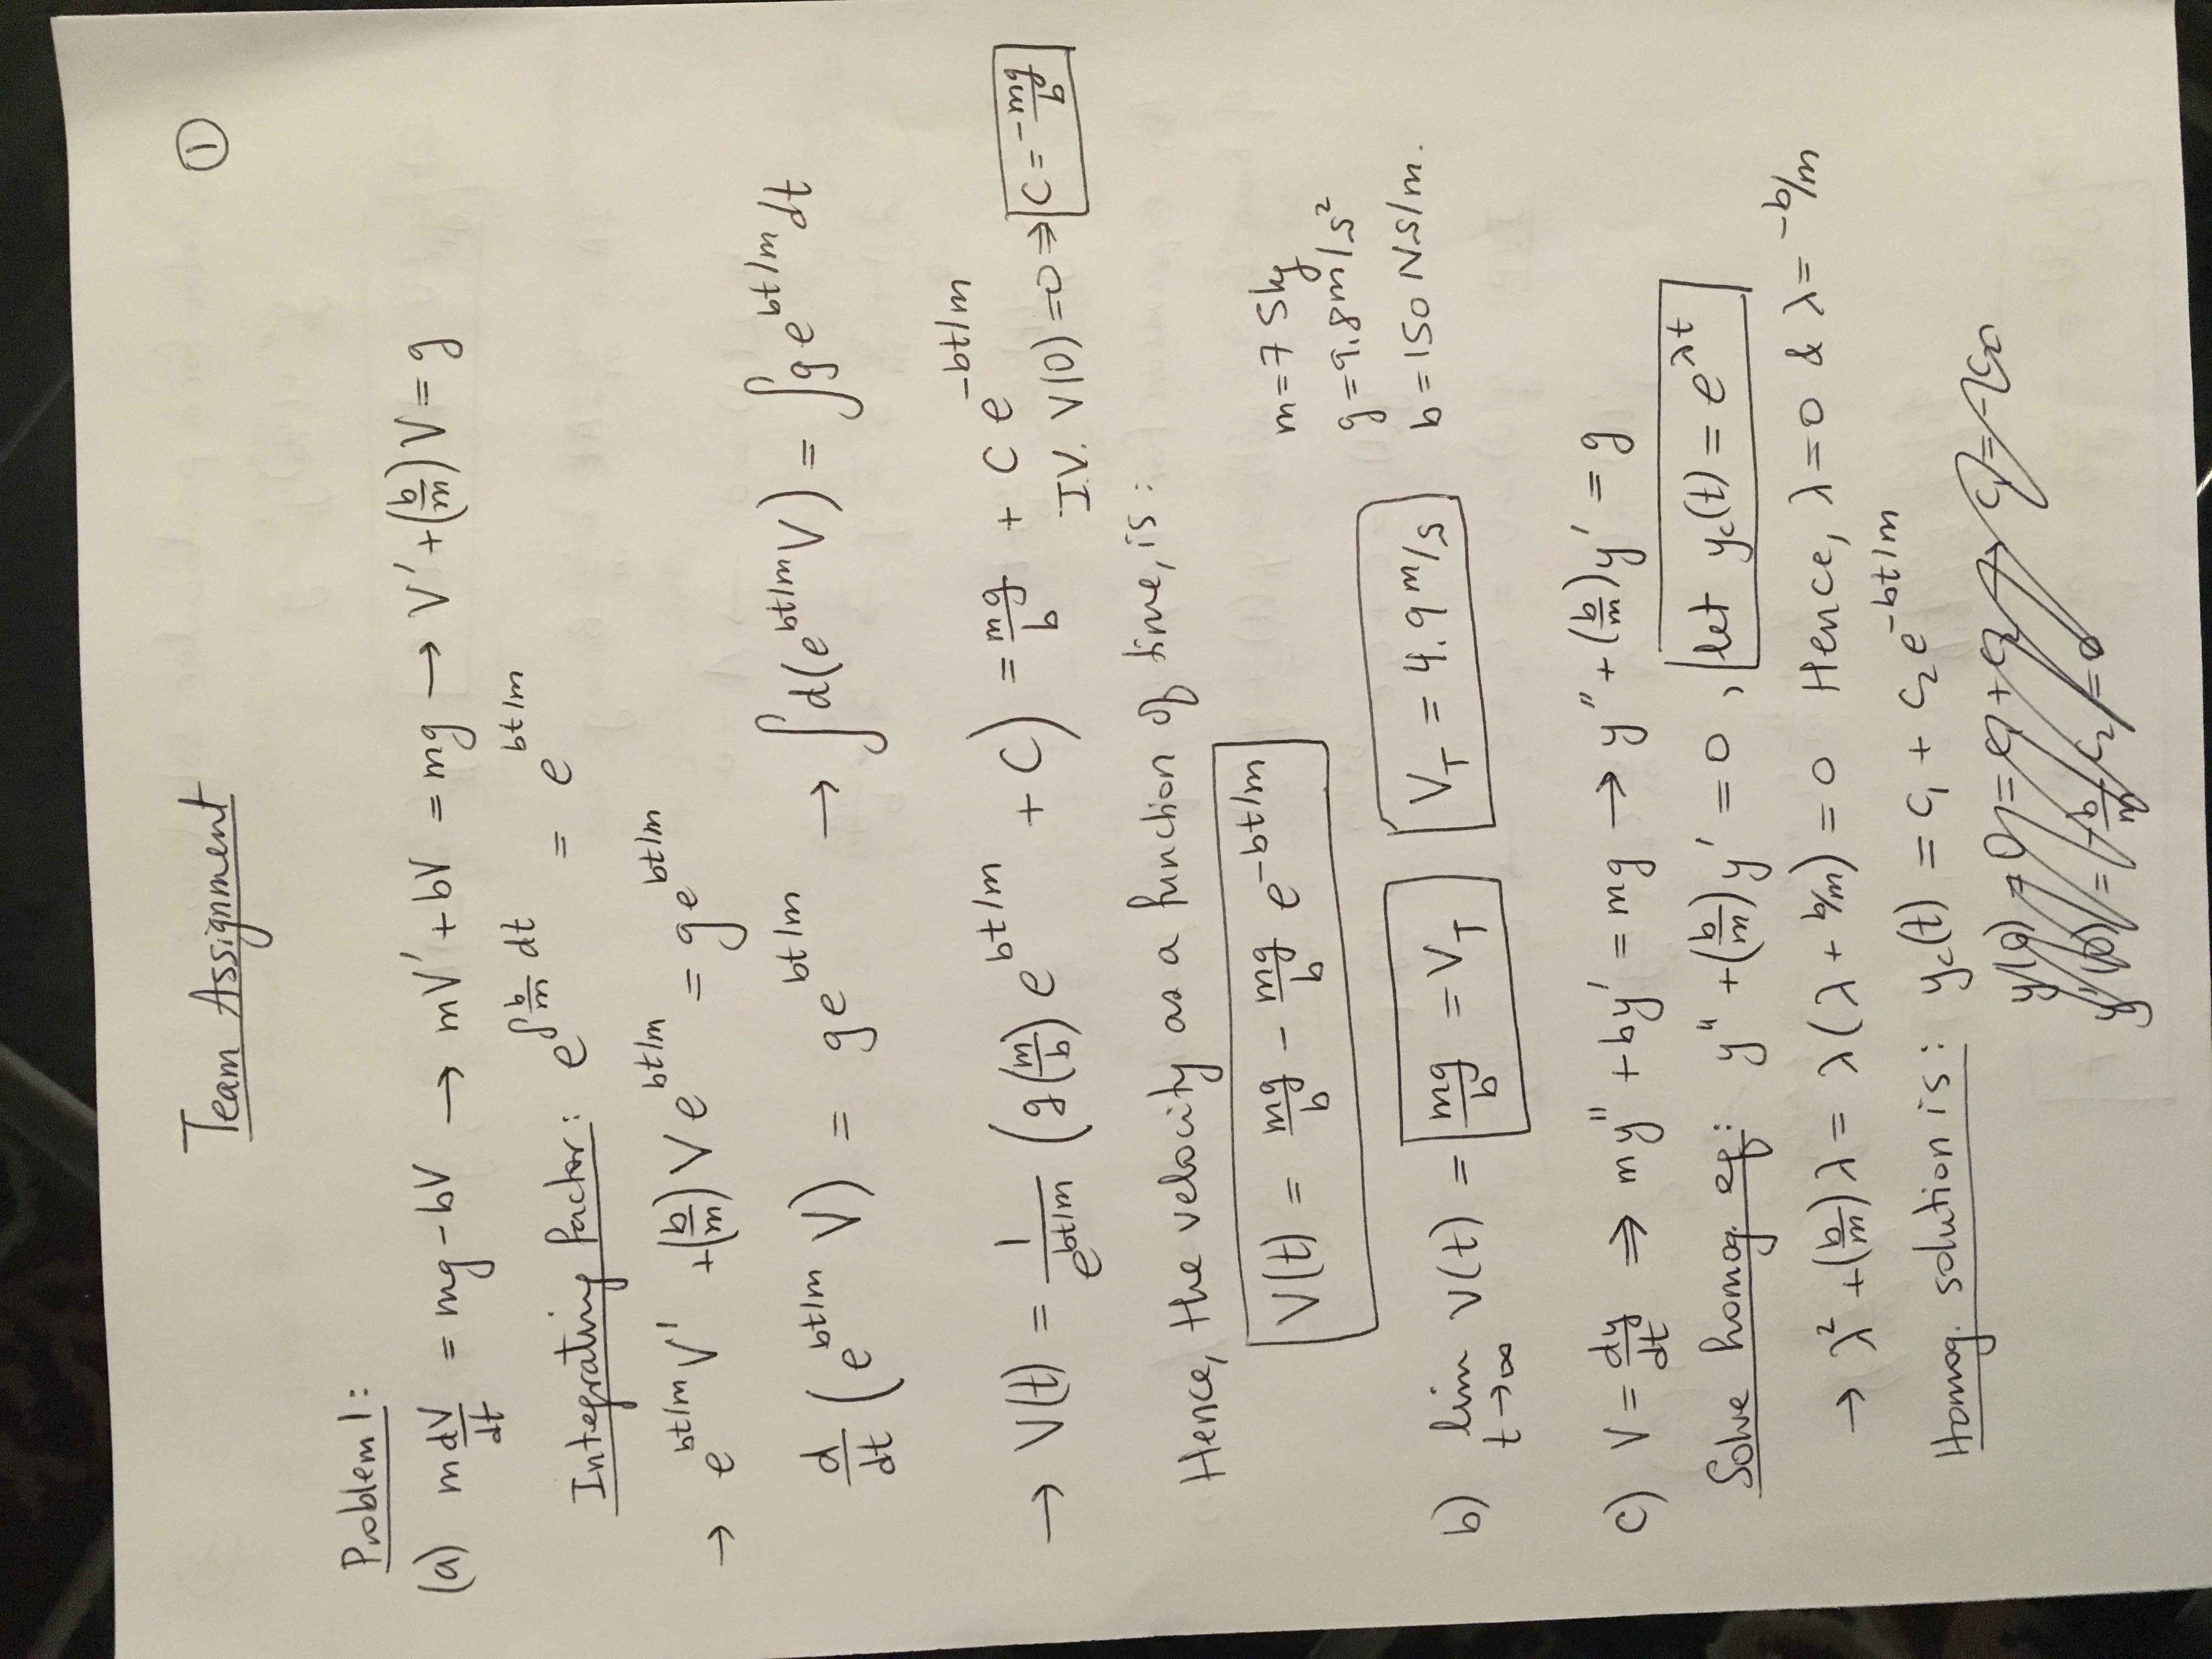 Team Assignment ①
Problem 1:
(a) m dV/dt = mg - bV → mV' + bV = mg → V' + (b/m)V = g
Integrating factor: e^∫b/m dt = e^bt/m
→ e^bt/m V' + (b/m)V e^bt/m = g e^bt/m
d/dt (e^bt/m V) = g e^bt/m → ∫d(e^bt/m V) = ∫g e^bt/m dt
→ V(t) = 1/e^bt/m (g(m/b) e^bt/m + C) = mg/b + C e^-bt/m
I.V. V(0) = 0 ⇒ C = -mg/b
Hence, the velocity as a function of time, is:
V(t) = mg/b - mg/b e^-bt/m
m = 75kg
g = 9.8m/s²
b) lim t→∞ V(t) = mg/b = V_T V_T = 4.9 m/s b = 150 Ns/m.
c) V = dy/dt ⇒ my'' + by' = mg → y'' + (b/m)y' = g
Solve homog. eq: y'' + (b/m)y' = 0, let y_c(t) = e^λt
→ λ² + (b/m)λ = λ(λ + b/m) = 0 Hence, λ = 0 & λ = -b/m
Homog. solution is: y_c(t) = c₁ + c₂ e^-bt/m
y(0) = 0 = c₁ + c₂ → c₁ = -c₂